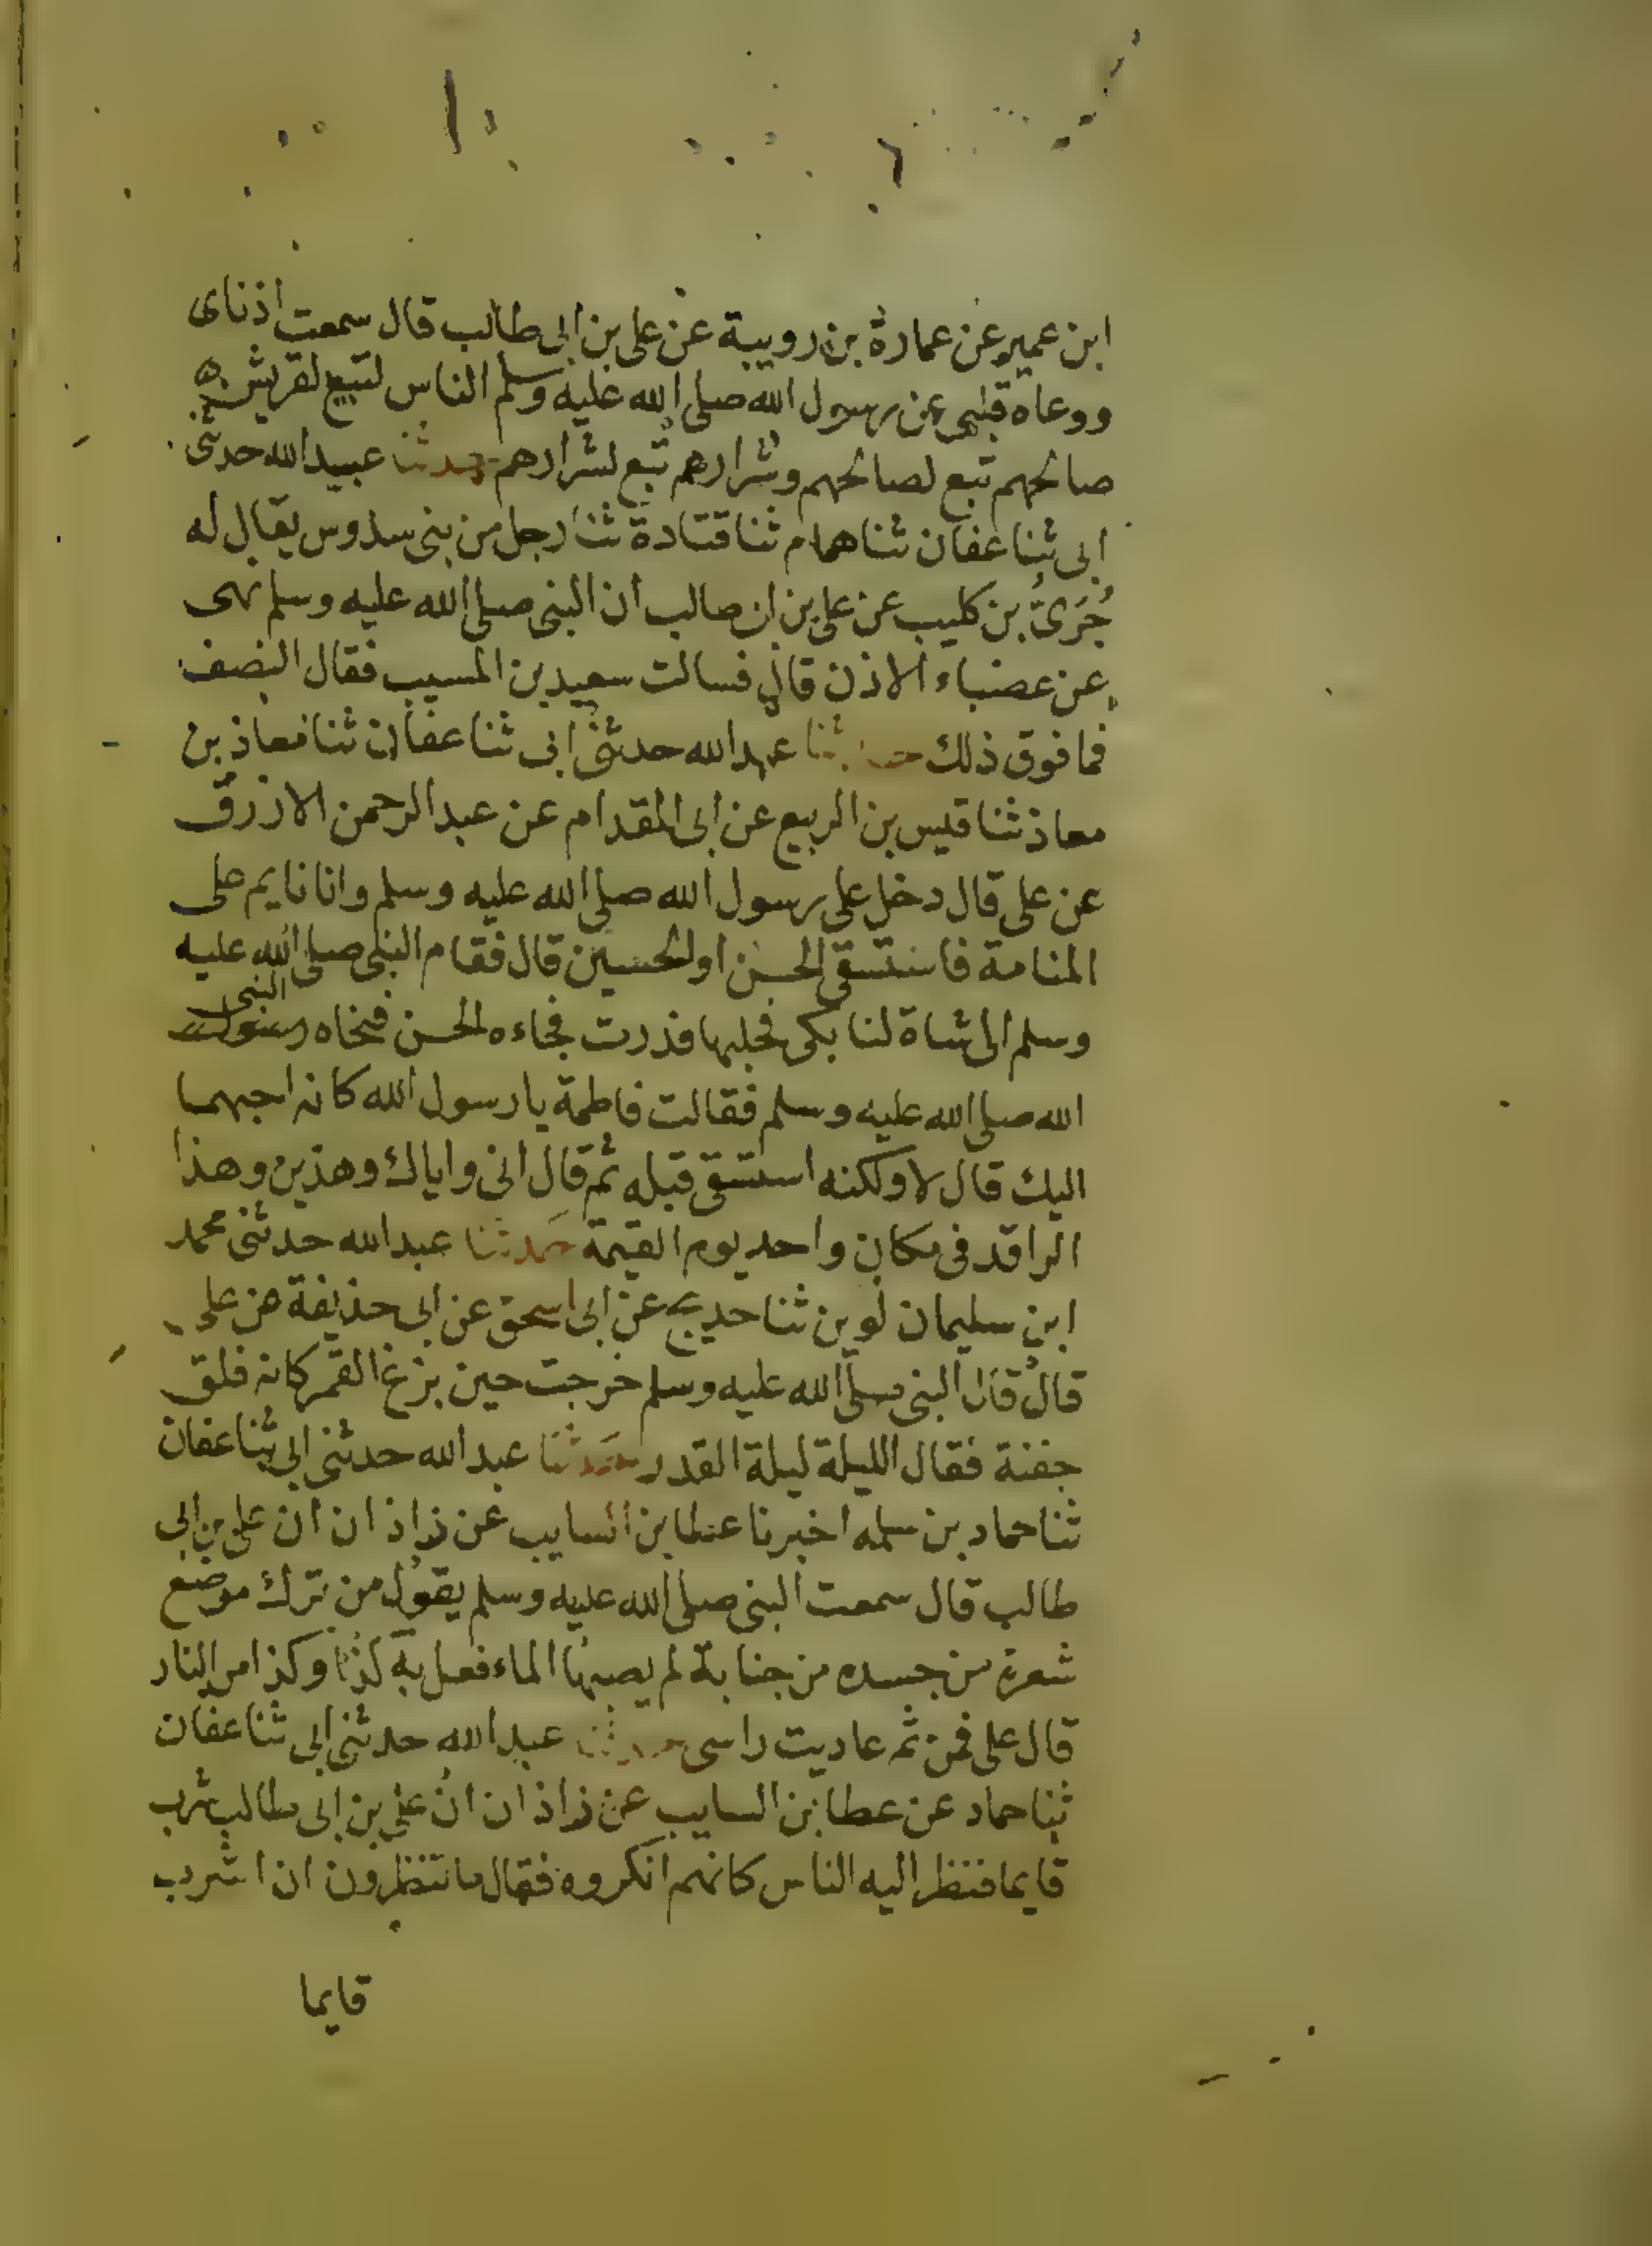 ابن عمير عن عمارة بن رويبة عن على بن ابى طالب قال سمعت اذناى
ووعاه قلبى عن رسول الله صلى الله عليه وسلم الناس لتبع لقريش
صالحهم تبع لصالحهم وشرارهم تبع لشرارهم حدثنا عبيد الله حدثنى
ابى ثنا عفان ثنا همام ثنا قتادة ثنا رجل من بنى سدوس يقال له
جُرَىُّ بن كليب عن على بن ان صالب ان النبى صلى الله عليه وسلم نهى
عن عضباء الاذن قال فسالت سعيد بن المسيب فقال النصف
فما فوق ذلك حدثنا عبد الله حدثنى ابى ثنا عفان ثنا معاذ بن
معاذ ثنا قيس بن الربيع عن ابى المقدام عن عبد الرحمن الازرق
عن على قال دخل على رسول الله صلى الله عليه وسلم وانا نايم على
المنامة فاستسقى الحسن او الحسين قال فقام النبى صلى الله عليه
وسلم الى شاة لنا بكى فحلبها فدرت فجاءه الحسن فنحاه النبى
الله صلى الله عليه وسلم فقالت فاطمة يا رسول الله كانه احبهما
اليك قال لا ولكنه استسقى قبله ثم قال انى واياك وهذين وهذا
الراقد فى مكان واحد يوم القيمة حدثنا عبد الله حدثنى محمد
ابن سليمان لوين ثنا حديج عن ابى اسحق عن ابى حذيفة عن على
قال قال النبى صلى الله عليه وسلم خرجت حين بزغ القمر كانه فلق
جفنة فقال الليلة ليلة القدر حدثنا عبد الله حدثنى ابى ثنا عفان
ثنا حماد بن سلمه اخبرنا عطا بن السايب عن زاذان ان على بن ابى
طالب قال سمعت النبى صلى الله عليه وسلم يقول من ترك موضع
شعرة من جسده من جنابة لم يصبها الماء فعل به كذا وكذا من النار
قال على فمن ثم عاديت راسى حدثنا عبد الله حدثنى ابى ثنا عفان
ثنا حماد عن عطا بن السايب عن زاذان ان على بن ابى طالب شرب
قايما فنظر اليه الناس كانهم انكروه فقال ما تنظرون ان اشرب
قايما